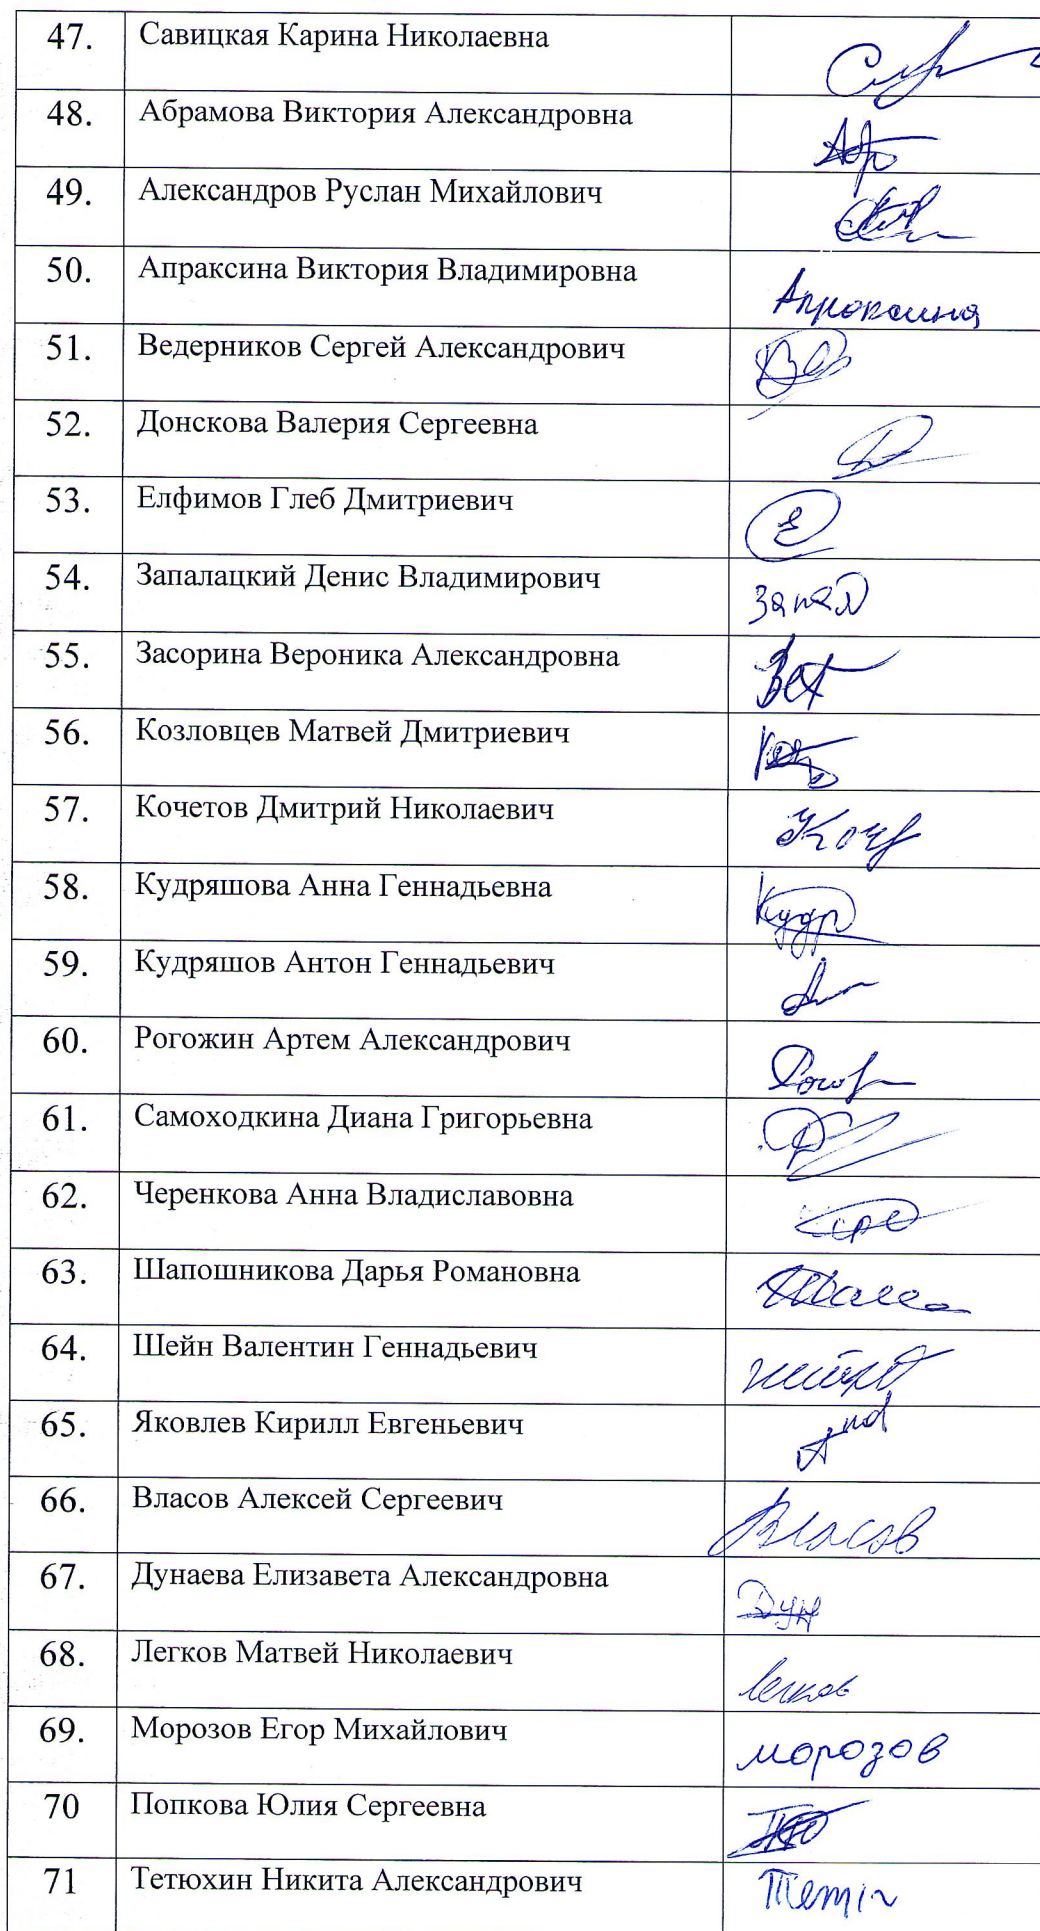 47. Савицкая Карина Николаевна
48. Абрамова Виктория Александровна
49. Александров Руслан Михайлович
50. Апраксина Виктория Владимировна Апраксина
51. Ведерников Сергей Александрович
52. Донскова Валерия Сергеевна
53. Елфимов Глеб Дмитриевич Е
54. Запалацкий Денис Владимирович Запал
55. Засорина Вероника Александровна
56. Козловцев Матвей Дмитриевич
57. Кочетов Дмитрий Николаевич Коч
58. Кудряшова Анна Геннадьевна Кудр
59. Кудряшов Антон Геннадьевич
60. Рогожин Артем Александрович
61. Самоходкина Диана Григорьевна
62. Черенкова Анна Владиславовна
63. Шапошникова Дарья Романовна
64. Шейн Валентин Геннадьевич
65. Яковлев Кирилл Евгеньевич
66. Власов Алексей Сергеевич Власов
67. Дунаева Елизавета Александровна Дун
68. Легков Матвей Николаевич Легков
69. Морозов Егор Михайлович морозов
70 Попкова Юлия Сергеевна
71 Тетюхин Никита Александрович